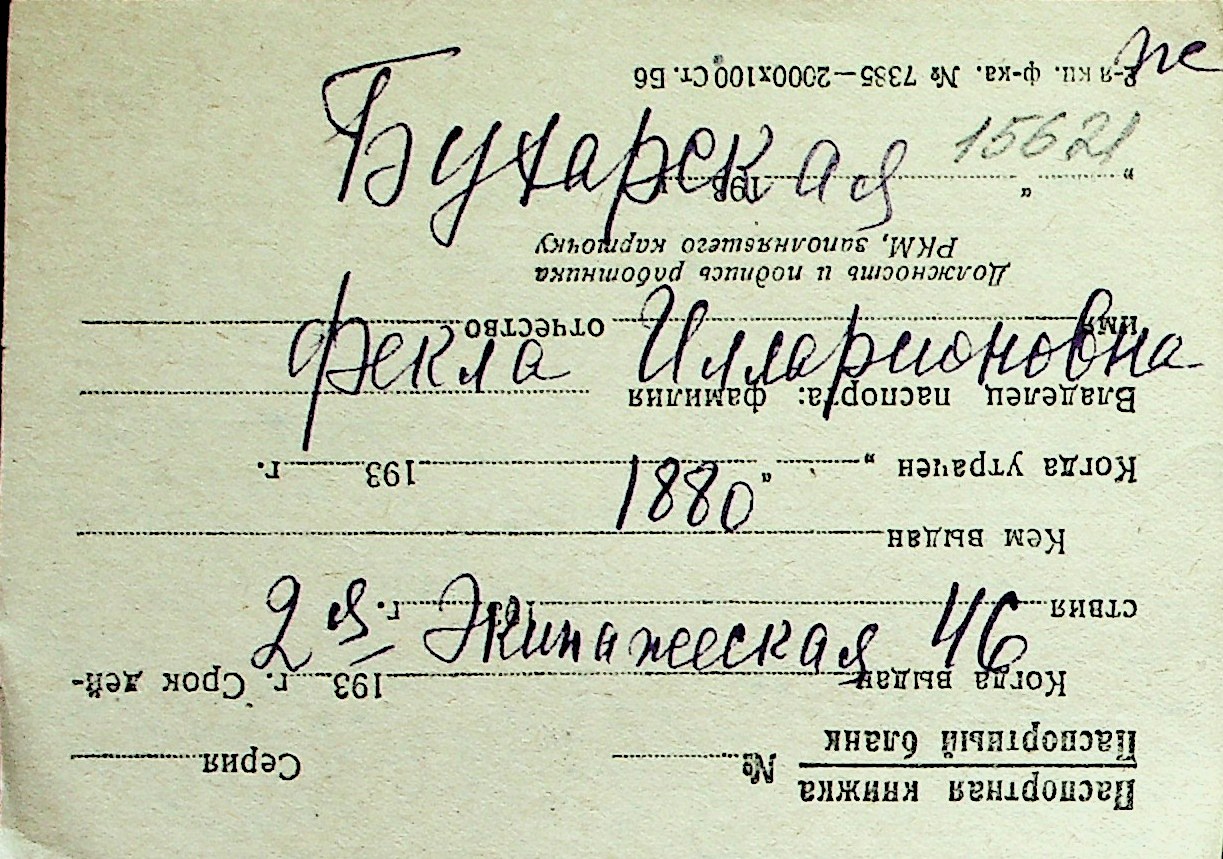 же
Бухарская 15621
Фекла Илларионовна
1880
2я Экипажеская 46
Паспортная книжка № Серия
Паспортный бланк
Когда выдан 193 г. Срок дей-
ствия 193 г.
Кем выдан
Когда утрачен „ “ 193 г.
Владелец паспорта: фамилия
имя отчество
Должность и подпись работника
РКМ, заполнявшего карточку
„ “ 193
2-я кн. ф-ка. № 7385—2000х100 Ст. Бб